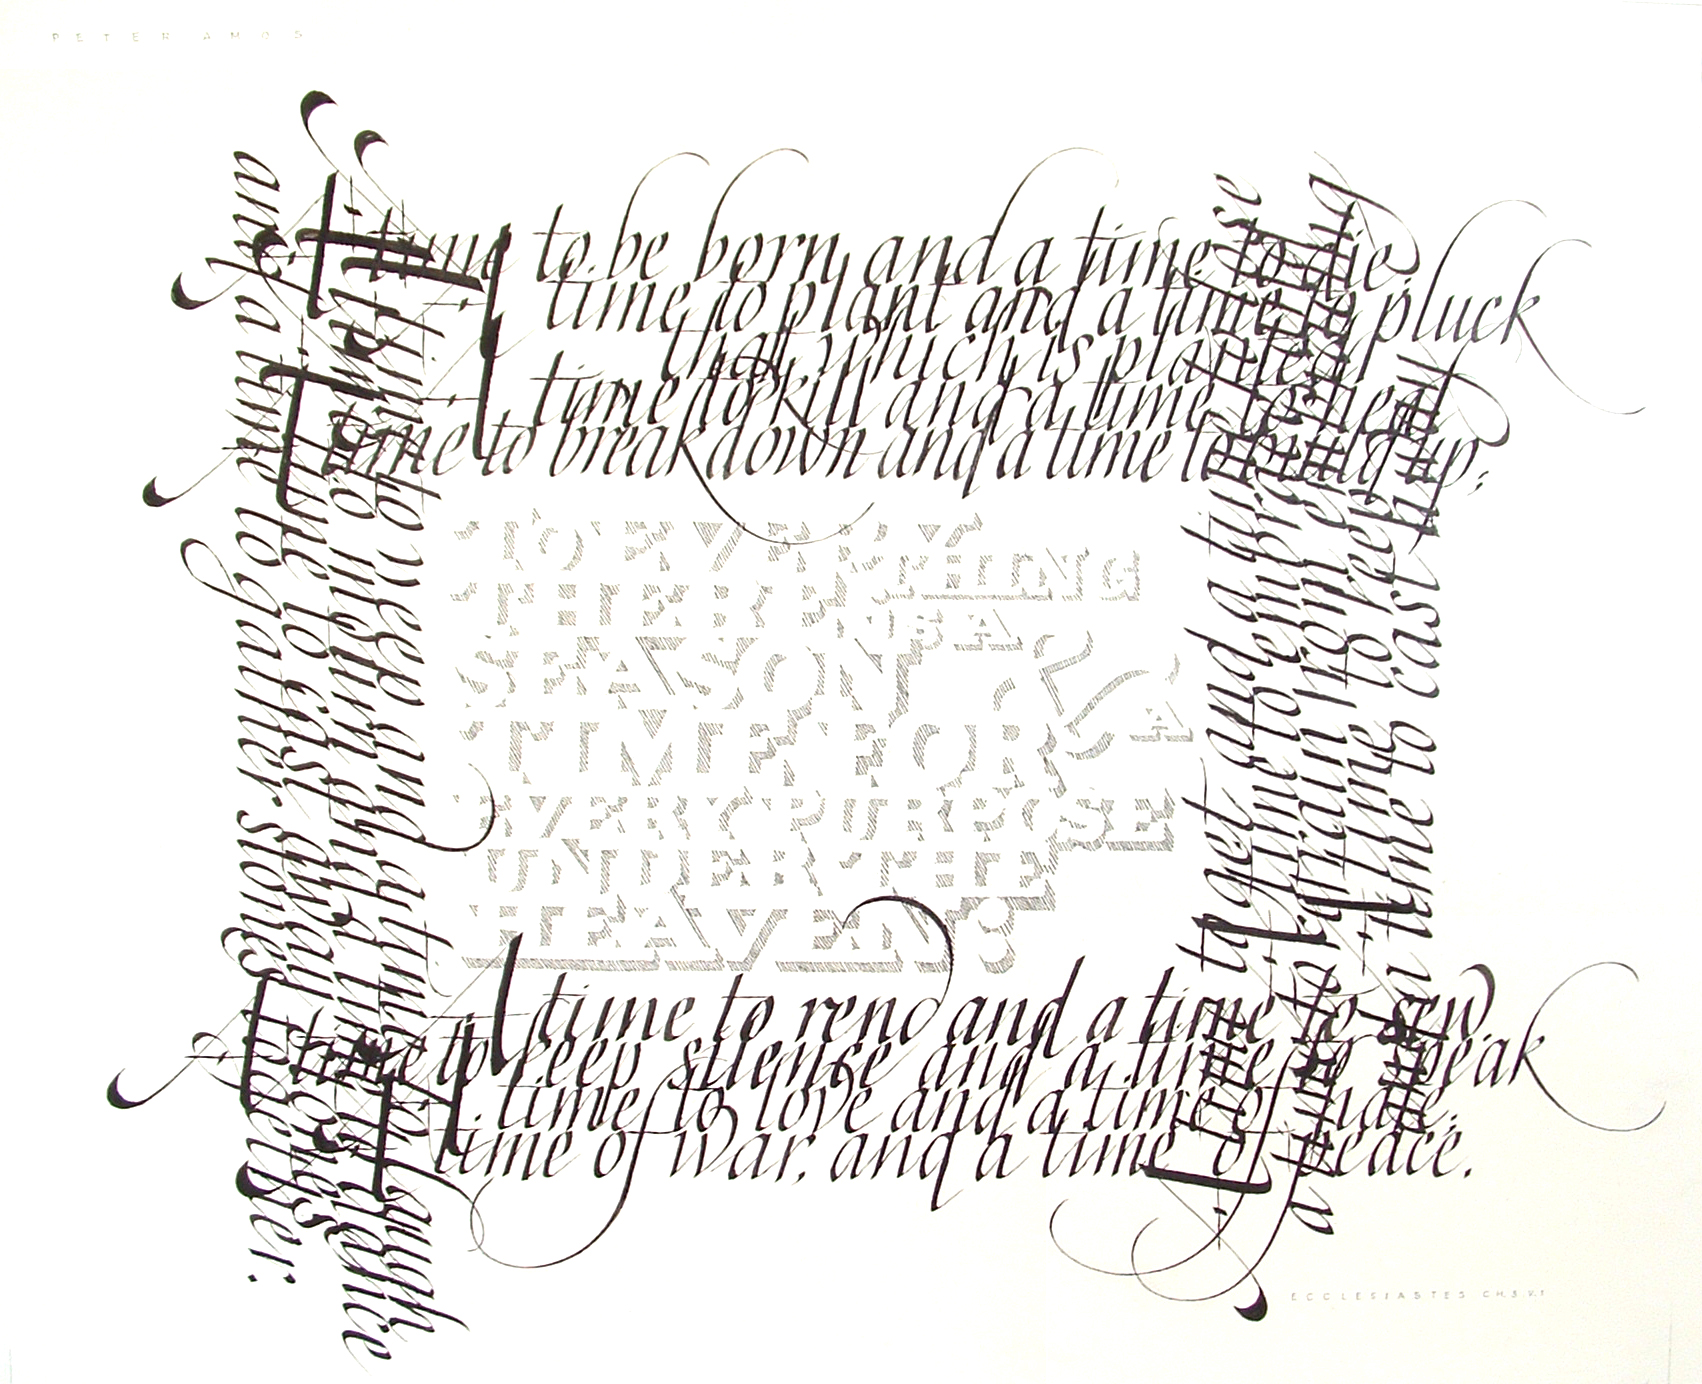 PETER AMOS
A time to be born, and a time to die.
A time to plant and a time to pluck
that which is planted.
A time to kill and a time to heal
A time to break down and a time to build up;
A time to weep and a time to laugh
time to mourn and a time to dance
A time to cast away stones
and a time to gather stones together:
TO EVERY
THING
THERE IS A
SEASON,
& A
TIME FOR
EVERY PURPOSE
UNDER THE
HEAVEN;
A time to get and a time to lose
A time to embrace
and a time to refrain from embracing
A time to keep and
a time to cast away
A time to rend and a time to sew
A time to keep silence and a time to speak
A time to love and a time of hate;
A time of war, and a time of peace.
ECCLESIASTES CH.3.V.1